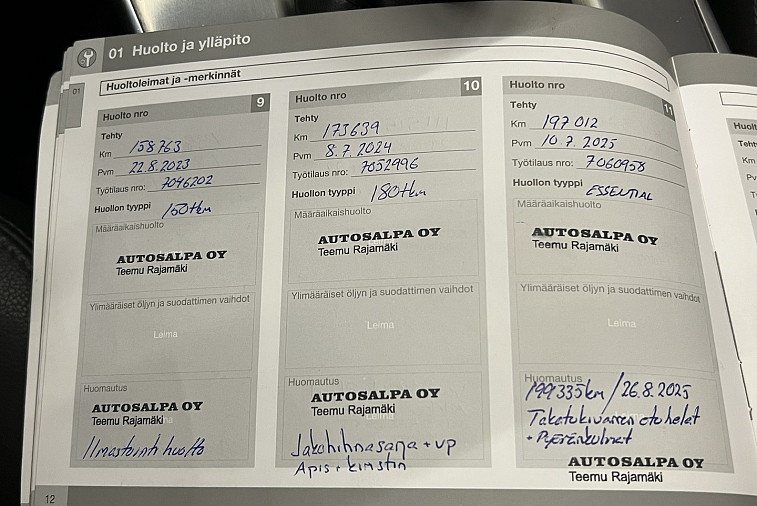 01 Huolto ja ylläpito
01
Huoltoleimat ja -merkinnät
Huolto nro 9
Tehty
Km 158763
Pvm 22.8.2023
Työtilaus nro: 7046202
Huollon tyyppi 150tkm
Määräaikaishuolto
AUTOSALPA OY
Teemu Rajamäki
Ylimääräiset öljyn ja suodattimen vaihdot
Leima
Huomautus
AUTOSALPA OY
Teemu Rajamäki
Ilmastointi huolto
12
Huolto nro 10
Tehty
Km 173639
Pvm 8.7.2024
Työtilaus nro: 7052996
Huollon tyyppi 180tkm
Määräaikaishuolto
AUTOSALPA OY
Teemu Rajamäki
Ylimääräiset öljyn ja suodattimen vaihdot
Leima
Huomautus
AUTOSALPA OY
Teemu Rajamäki
Jakohihnasarja + vp
Apis + kiristin
Huolto nro 11
Tehty
Km 197012
Pvm 10.7.2025
Työtilaus nro: 7060958
Huollon tyyppi ESSENTIAL
Määräaikaishuolto
AUTOSALPA OY
Teemu Rajamäki
Ylimääräiset öljyn ja suodattimen vaihdot
Leima
Huomautus
199335km / 26.8.2025
Takatukivarren etuhelat
+ Pyöränkulmat
AUTOSALPA OY
Teemu Rajamäki
Huolt
Teht
Km
Pv